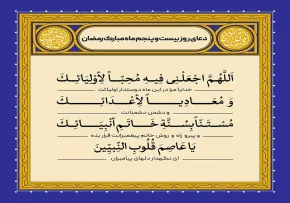 دعای روز بیست و پنجم ماه مبارک رمضان
اَللّهُمَّ اجْعَلْنی فیهِ مُحِبّاً لِأَوْلیائِکَ
خدایا مرا در این ماه دوستدار اولیائت
وَ مُعادِیاً لِأَعْدائِکَ
و دشمن دشمنانت
مُسْتَنّاً بِسُنَّةِ خاتَمِ أَنْبِیائِکَ
و پیرو راه و روش خاتم پیغمبرانت قرار بده
یا عاصِمَ قُلُوبِ النَّبِیّینَ
ای نگهدار دلهای پیامبران